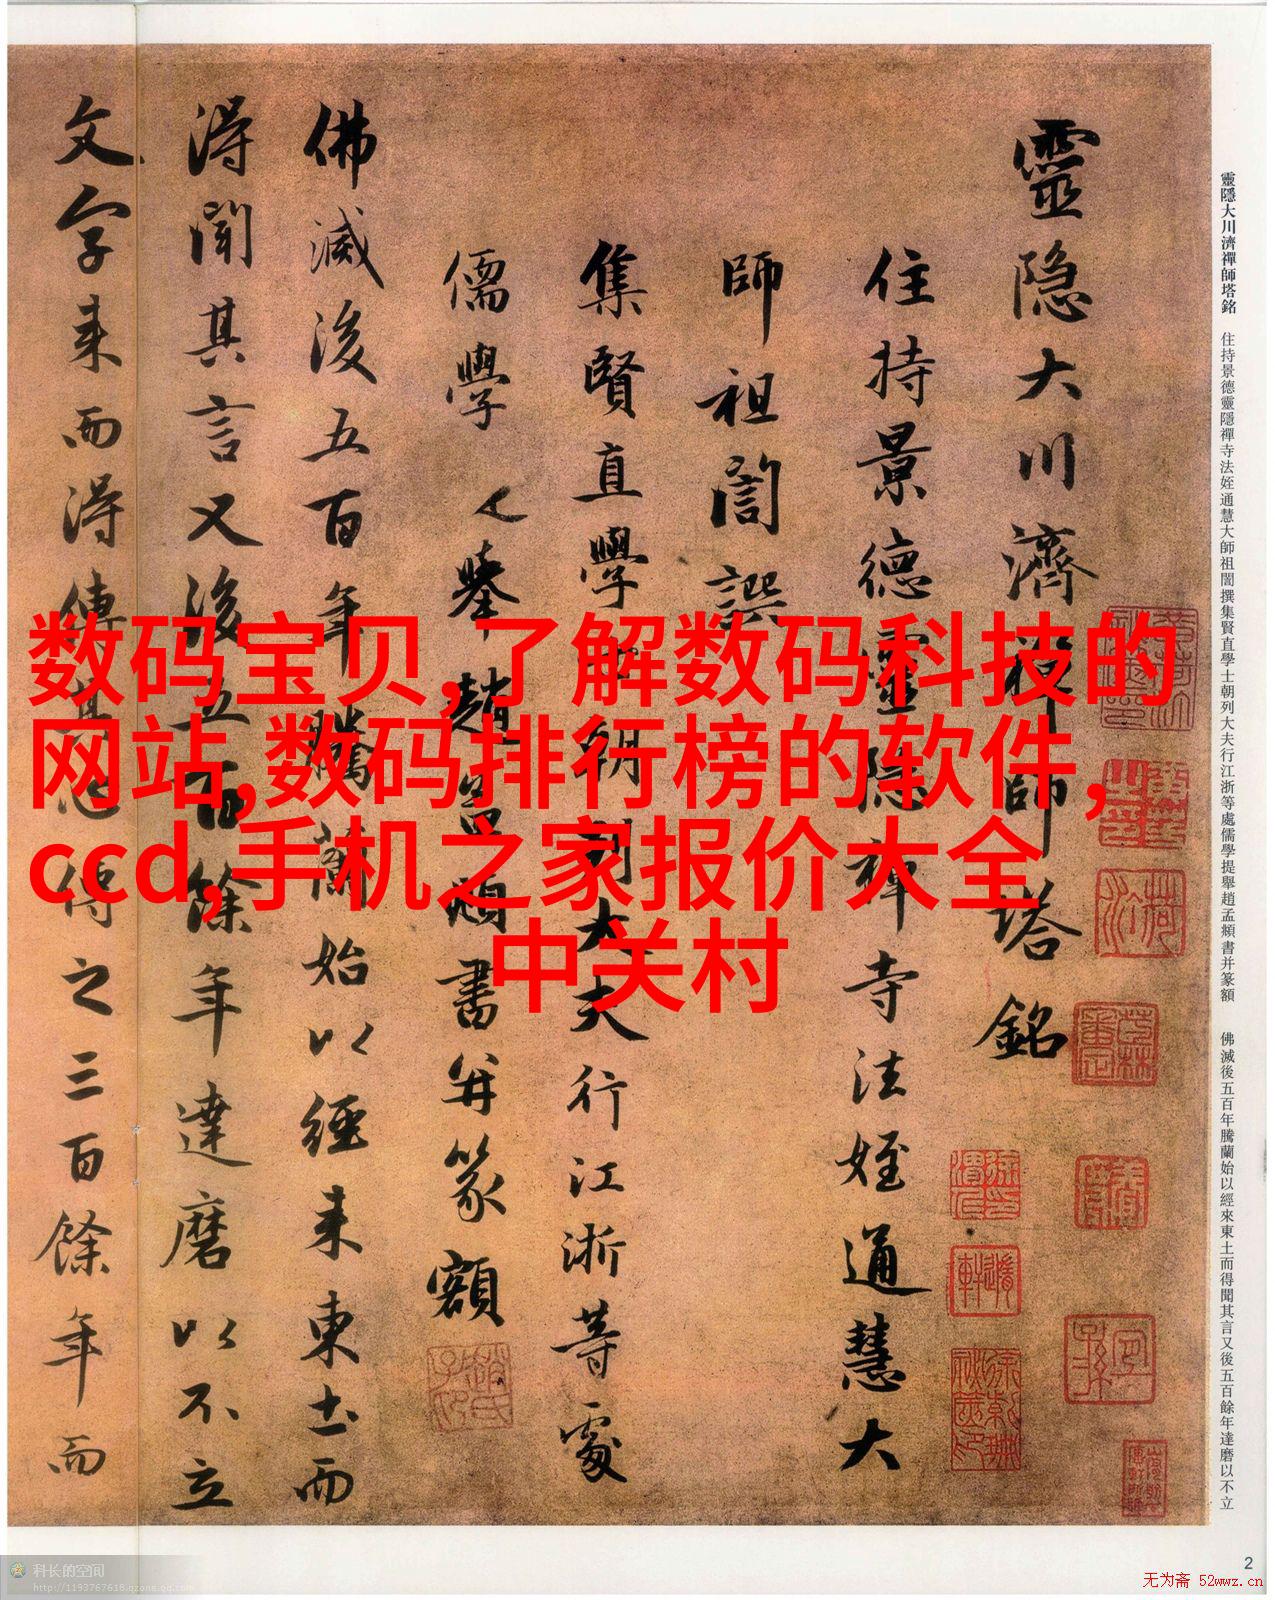 靈隱大川濟禪師塔銘 住持景德靈隱禪寺法姪通慧大師祖誾撰集賢直學士朝列大夫行江浙等處儒學提舉趙孟頫書并篆額 佛滅後五百年騰蘭始以經來東土而得聞其言又後五百餘年達磨以不立
靈隐大川濟禅師塔銘
住持景德靈隐禅寺法姪通慧大
師祖誾譔
集賢直學士朝列大夫行江浙等處
儒學提舉趙孟頫書并篆額
佛滅後五百年騰蘭始以經来東土而
得聞其言又後五百餘年達磨以不立
文字来而得傳其
傳之三百餘年而
数码宝贝,了解数码科技的
网站,数码排行榜的软件,
ccd,手机之家报价大全
中关村
2
科长的空间
http://1193767618.qzone.qq.com
无为斋 52wwz.cn